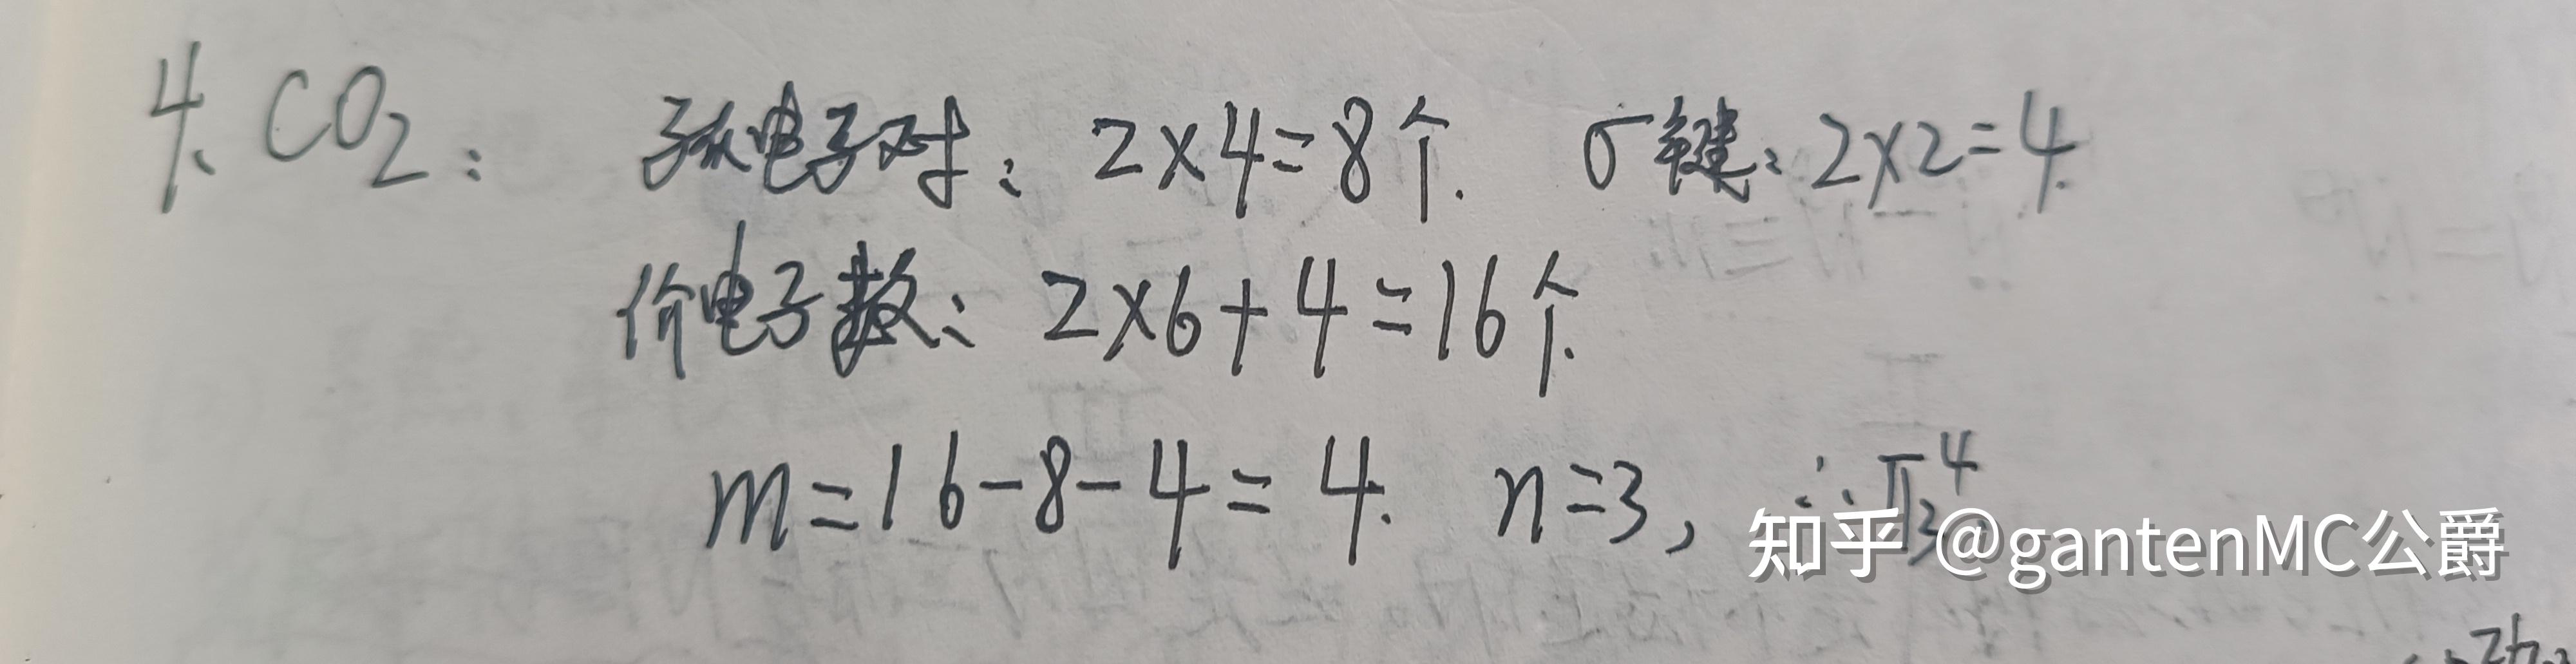 4. CO₂: 孤电子对: 2×4=8个. σ键: 2×2=4.
价电子数: 2×6+4=16个.
m=16-8-4=4. n=3, ∴Π₃⁴
知乎 @gantenMC公爵